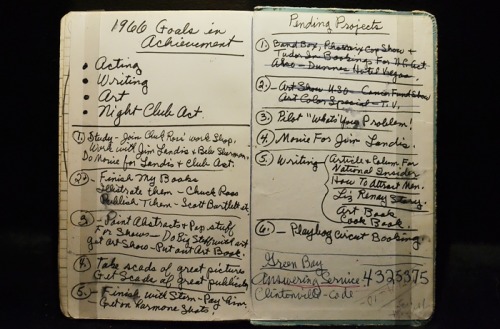 1966 Goals in
Achievement
• Acting
• Writing
• Art
• Night Club Act.
1. Study - Join Club Rose' Work Shop,
Work with Jim Landis & Bela Sherman,
Do Movie for Landis & Club Act.
2. - Finish My Books
Illistrate them - Chuck Rose
Publish Them - Scott Bartlett
3 - Paint Abstracts & Pop stuff
For Shows - Do Big Stuff with art
get Art Show - Put out Art Book.
4. Take scads of great pictures
Get Scads of great publicity
5. - Finish with Stern - Pay him.
Get on Harmone Shots
Pending Projects
1) Band Box, Phoenix Cop Show &
Tudor In Bookings For N.C. Act.
Also - Dunnes Hotel Vegas.
2. - Art Show 430 - Cancer Fund Show
Art Color Special - T.V.
3. Pilot "What's Your Problem!
4. Movie For Jim Landis.
5. Writing Article & Column For
National Insider
How To Attract Men.
Liz Renay Story.
Art Book
Cook Book.
6. - Playboy Circut Booking.
Green Bay
Answering Service 4325375
Clintonville - Code